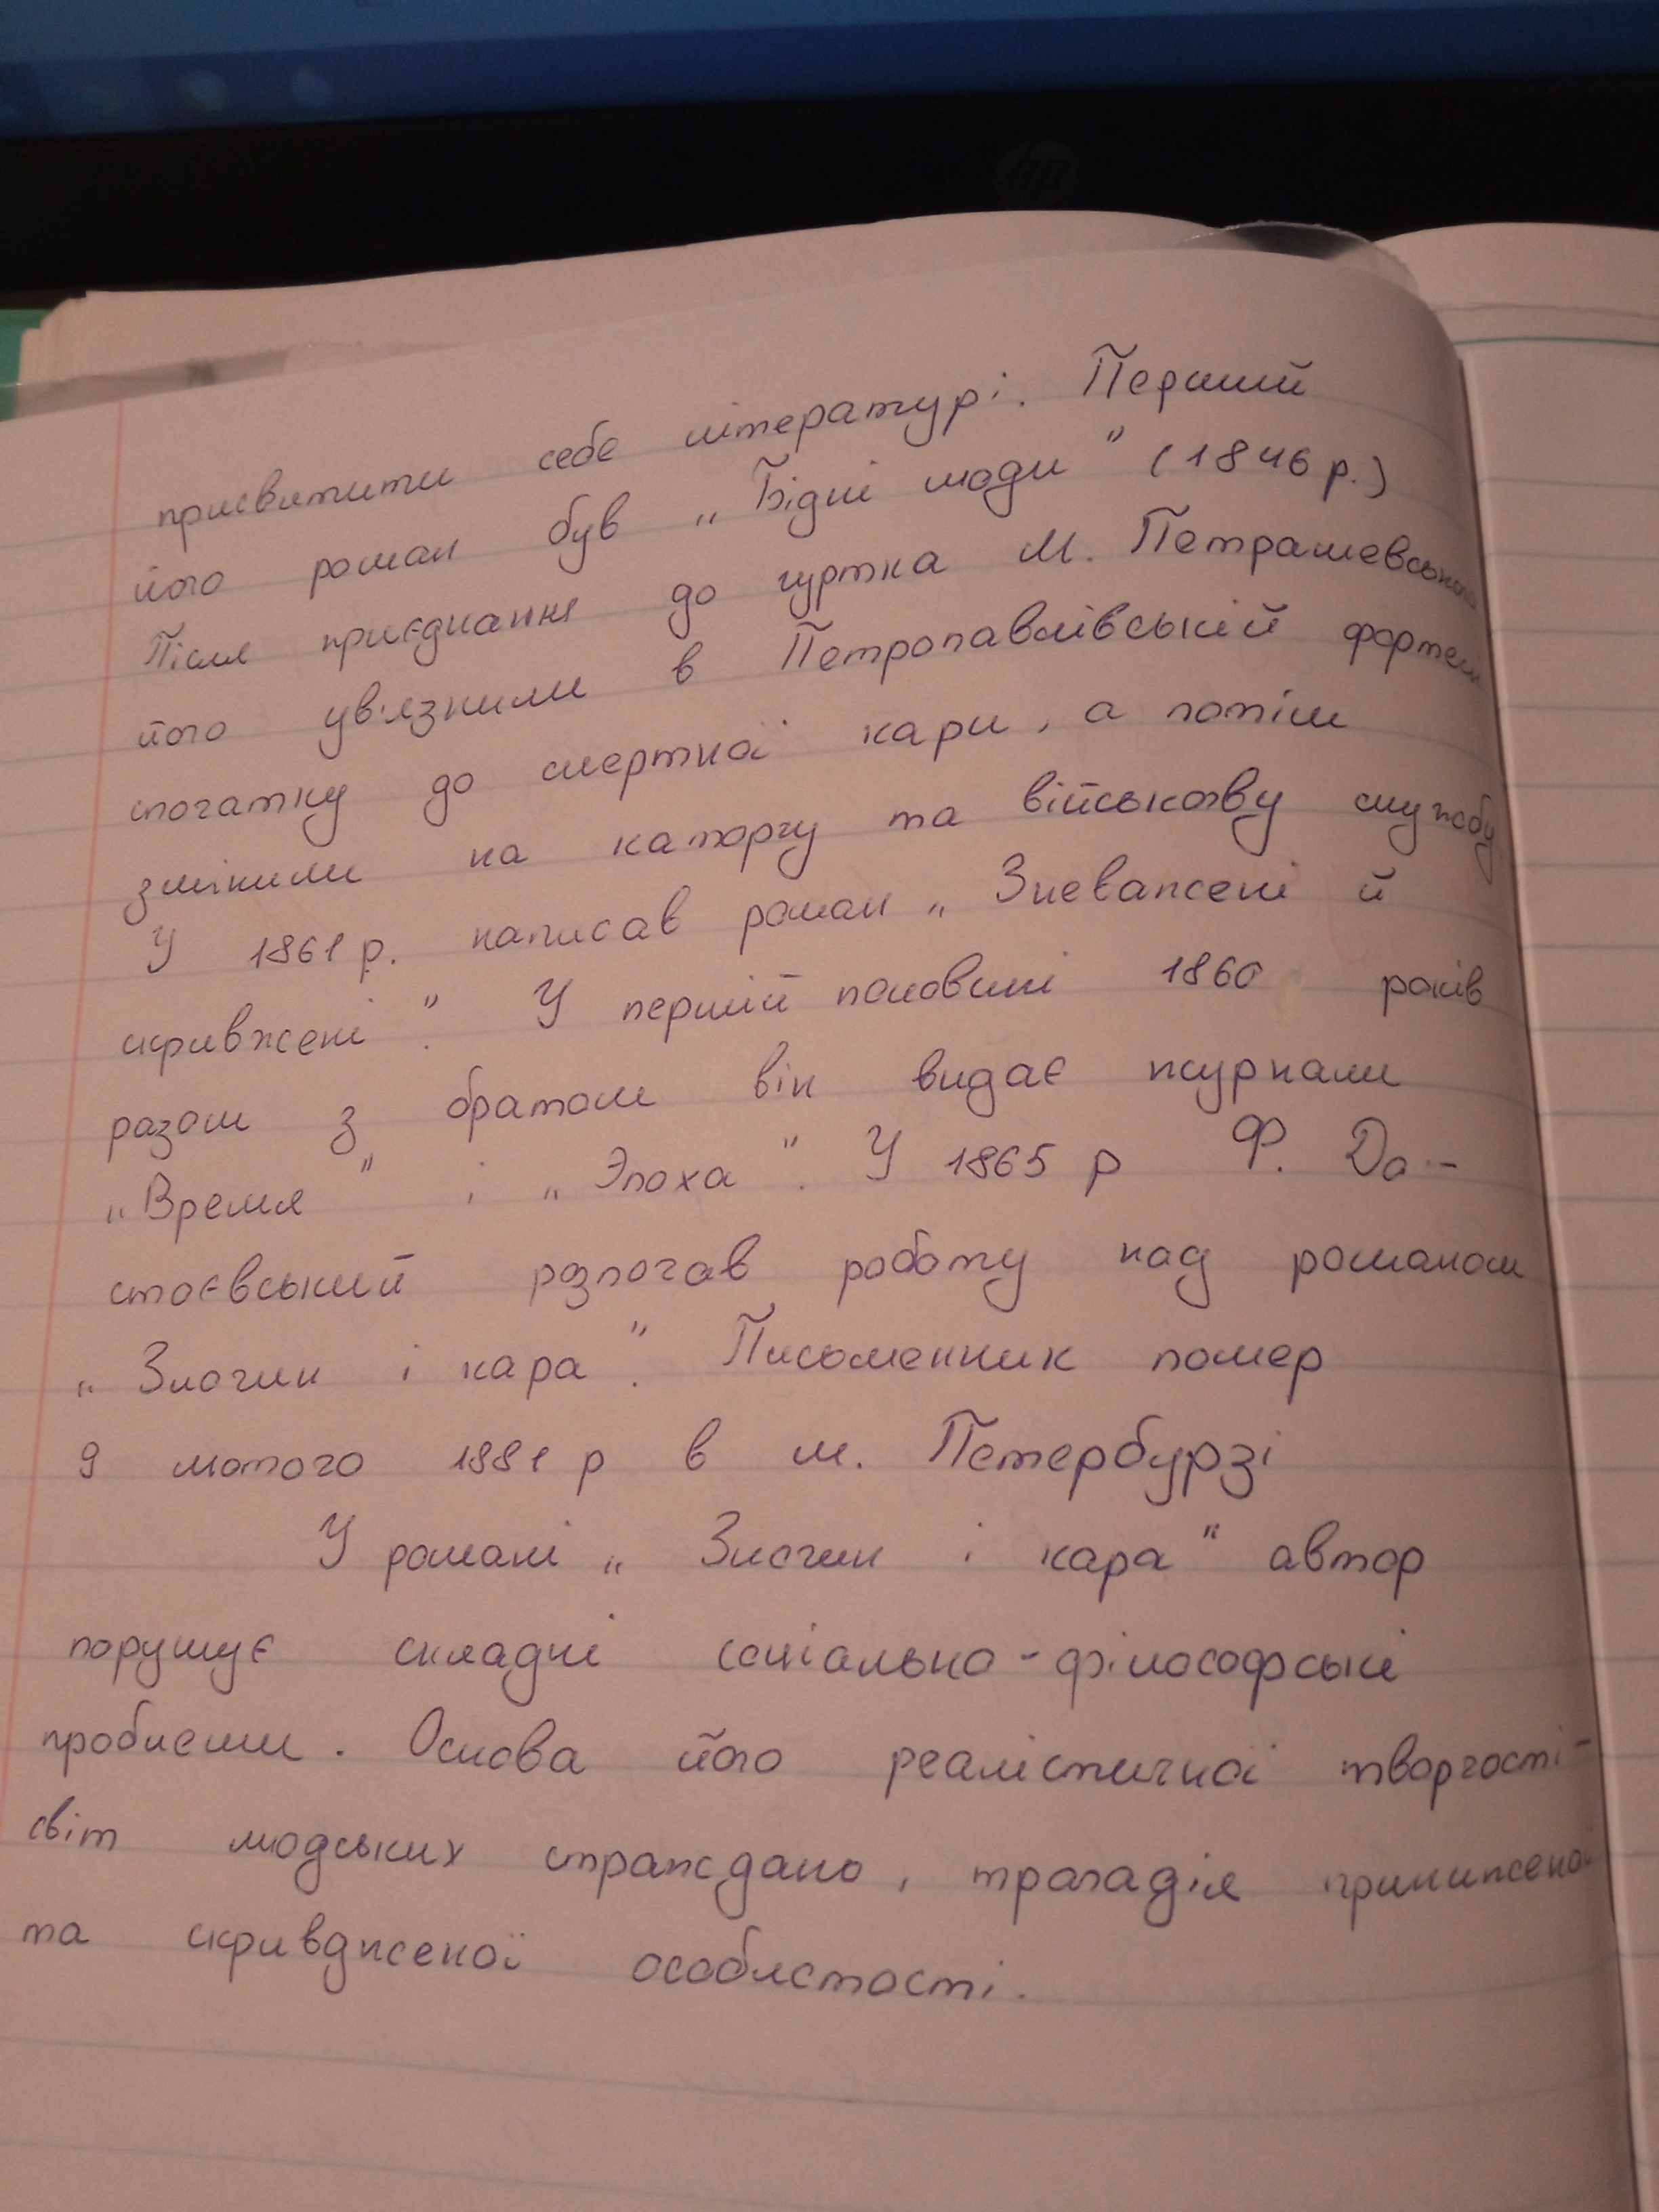 hp
присвятити себе літературі. Перший
його роман був „Бідні люди" (1846 р.)
Після приєднання до гуртка М. Петрашевського
його ув'язнили в Петропавлівській фортеці
спочатку до смертної кари, а потім
змінили на каторгу та військову службу
У 1861 р. написав роман „Зневажені й
скривжені". У першій половині 1860 років
разом з братом він видає журнали
„Время" і „Эпоха". У 1865 р Ф. До-
стоєвський розпочав роботу над романом
„Злочин і кара". Письменник помер
9 лютого 1881 р в м. Петербурзі
У романі „Злочин і кара" автор
порушує складні соціально-філософські
проблеми. Основа його реалістичної творчості-
світ людських страждань, трагадія приниженої
та скривдженої особистості.